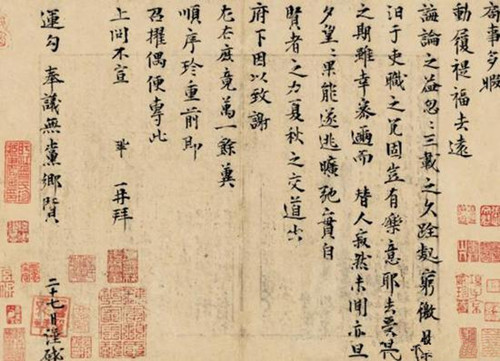 局事多暇
動履禔福去遠
誨論之益忽〻三載之久跧處窮徼日迷
汩于吏職之冗固豈有樂意耶去受代
之期雖幸密邇而替人寂然未聞亦旦
夕望〻果能遂逃曠弛實自
賢者之力夏秋之交道出
府下因以致謝
左右庶竟萬一餘冀
順序珍重前即
召擢偶便專此
上問不宣 鞏再拜
運勾奉議無黨鄉賢
二十七日謹啟